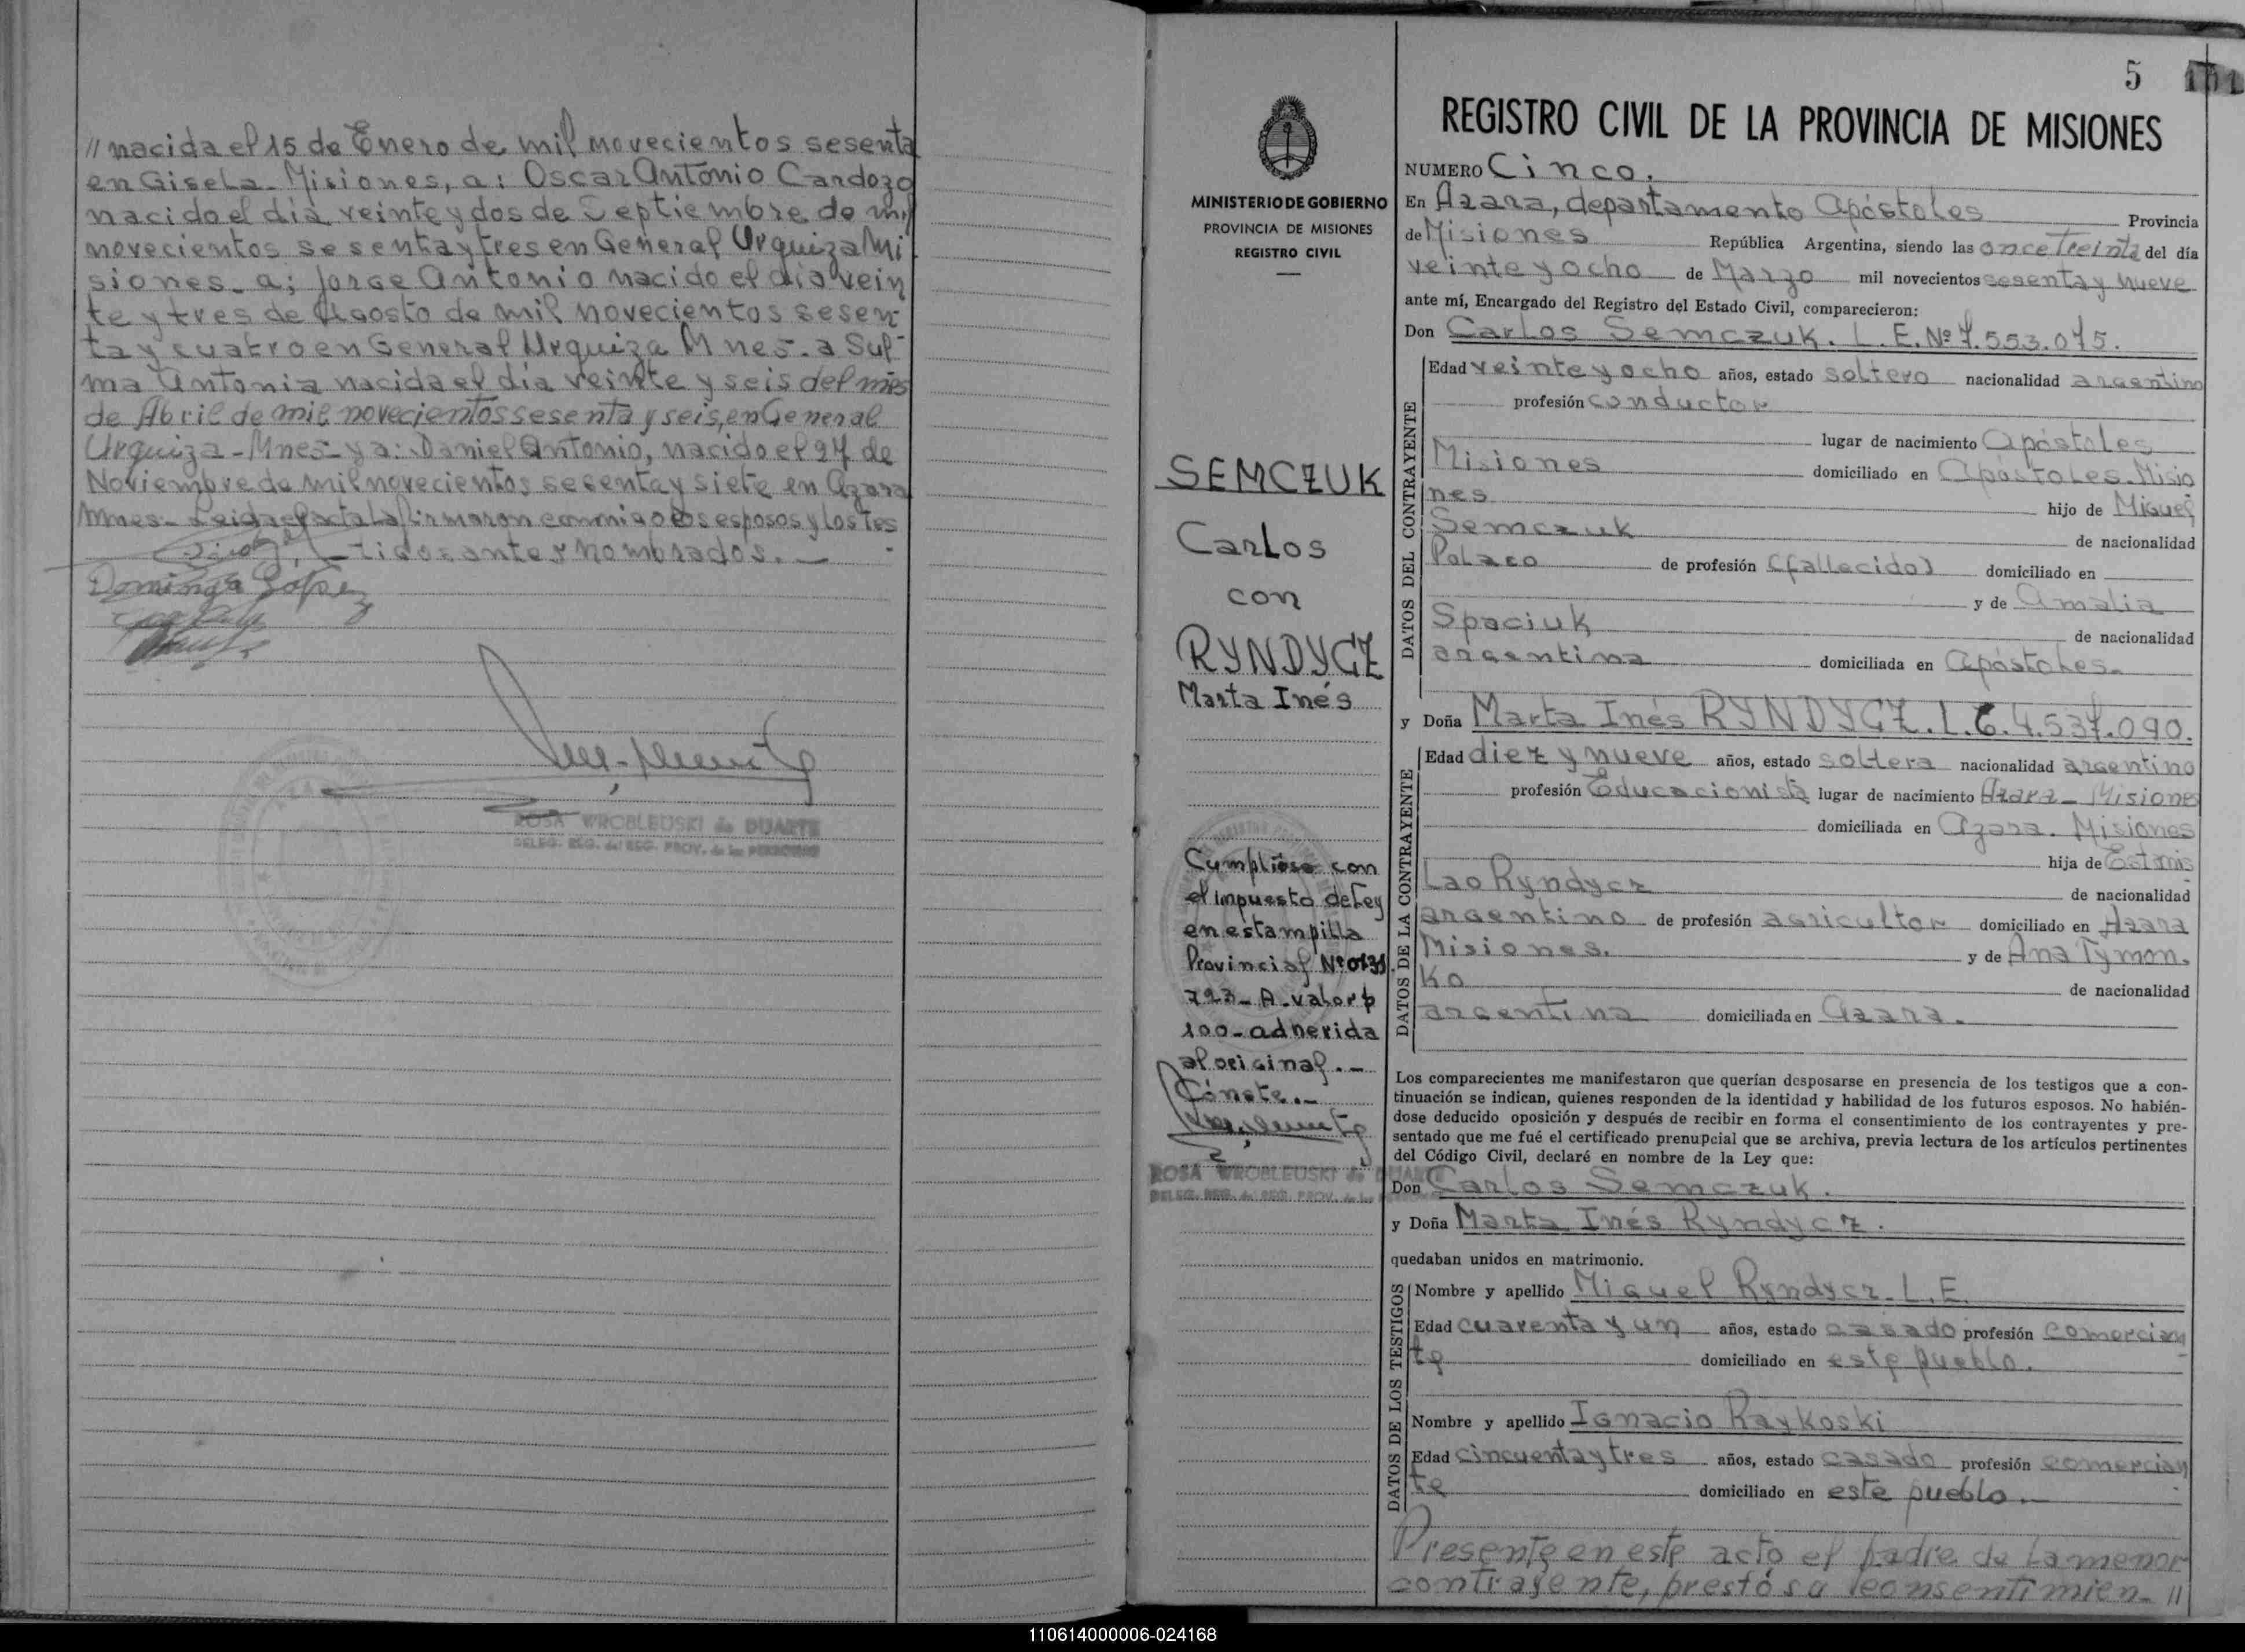 // nacida el 15 de Enero de mil novecientos sesenta
en Gisela - Misiones, a: Oscar Antonio Cardozo
nacido el día veinte y dos de Septiembre de mil
novecientos sesenta y tres en General Urquiza Mi
siones - a; Jorge Antonio nacido el día vein
te y tres de Agosto de mil novecientos sesen
ta y cuatro en General Urquiza Mnes. a Sul
ma Antonia nacida el día veinte y seis del mes
de Abril de mil novecientos sesenta y seis, en General
Urquiza - Mnes - y a: Daniel Antonio, nacido el 27 de
Noviembre de mil novecientos sesenta y siete en Azara
Mnes - Leida el acta la firmaron conmigo los esposos y los tes
tigos antes nombrados. -
ROSA WROBLEUSKI de DUARTE
MINISTERIO DE GOBIERNO
PROVINCIA DE MISIONES
REGISTRO CIVIL
SEMCZUK
Carlos
con
RYNDYCZ
Marta Inés
Cumplióse con
el impuesto de Ley
en estampilla
Provincial Nº 0131
723 - A - valor $
100 - adherida
al original. -
Cónste. -
ROSA WROBLEUSKI de DUARTE
5
REGISTRO CIVIL DE LA PROVINCIA DE MISIONES
NUMERO Cinco.
En Azara, departamento Apóstoles Provincia
de Misiones República Argentina, siendo las once treinta del día
veinte y ocho de Marzo mil novecientos sesenta y nueve
ante mí, Encargado del Registro del Estado Civil, comparecieron:
Don Carlos Semczuk. L.E. Nº 7.553.075.
DATOS DEL CONTRAYENTE
Edad veinte y ocho años, estado soltero nacionalidad argentino
profesión conductor
lugar de nacimiento Apóstoles
Misiones domiciliado en Apóstoles Misio
nes hijo de Miguel
Semczuk de nacionalidad
Polaco de profesión (fallecido) domiciliado en
y de Amalia
Spaciuk de nacionalidad
argentina domiciliada en Apóstoles.
y Doña Marta Inés RYNDYCZ. L.C. 4.537.090.
DATOS DE LA CONTRAYENTE
Edad diez y nueve años, estado soltera nacionalidad argentino
profesión Educacionista lugar de nacimiento Azara - Misiones
domiciliada en Azara. Misiones
hija de Estanis
lao Ryndycz de nacionalidad
argentino de profesión agricultor domiciliado en Azara
Misiones. y de Ana Tymon
ko de nacionalidad
argentina domiciliada en Azara.
Los comparecientes me manifestaron que querían desposarse en presencia de los testigos que a con-
tinuación se indican, quienes responden de la identidad y habilidad de los futuros esposos. No habién-
dose deducido oposición y después de recibir en forma el consentimiento de los contrayentes y pre-
sentado que me fué el certificado prenupcial que se archiva, previa lectura de los artículos pertinentes
del Código Civil, declaré en nombre de la Ley que:
Don Carlos Semczuk.
y Doña Marta Inés Ryndycz.
quedaban unidos en matrimonio.
DATOS DE LOS TESTIGOS
Nombre y apellido Miguel Ryndycz - L.E.
Edad cuarenta y un años, estado casado profesión comercian
te domiciliado en este pueblo.
Nombre y apellido Ignacio Raykoski
Edad cincuenta y tres años, estado casado profesión comercian
te domiciliado en este pueblo. -
Presente en este acto el padre de la menor
contrayente, prestó su consentimien- //
110614000006-024168